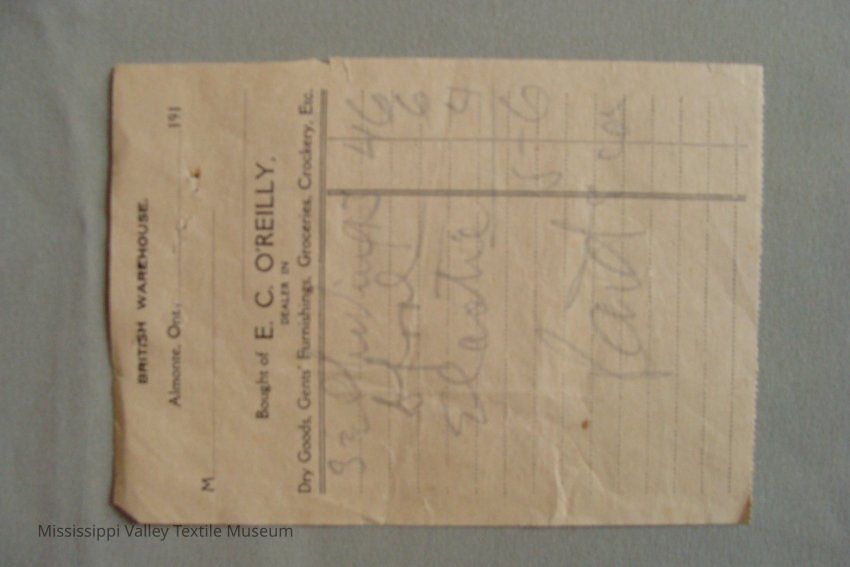 BRITISH WAREHOUSE.
Almonte, Ont., 191
M
Bought of E. C. O'REILLY,
DEALER IN
Dry Goods, Gents' Furnishings, Groceries, Crockery, Etc.
46
6
Elastic 4
56
Paid
Mississippi Valley Textile Museum